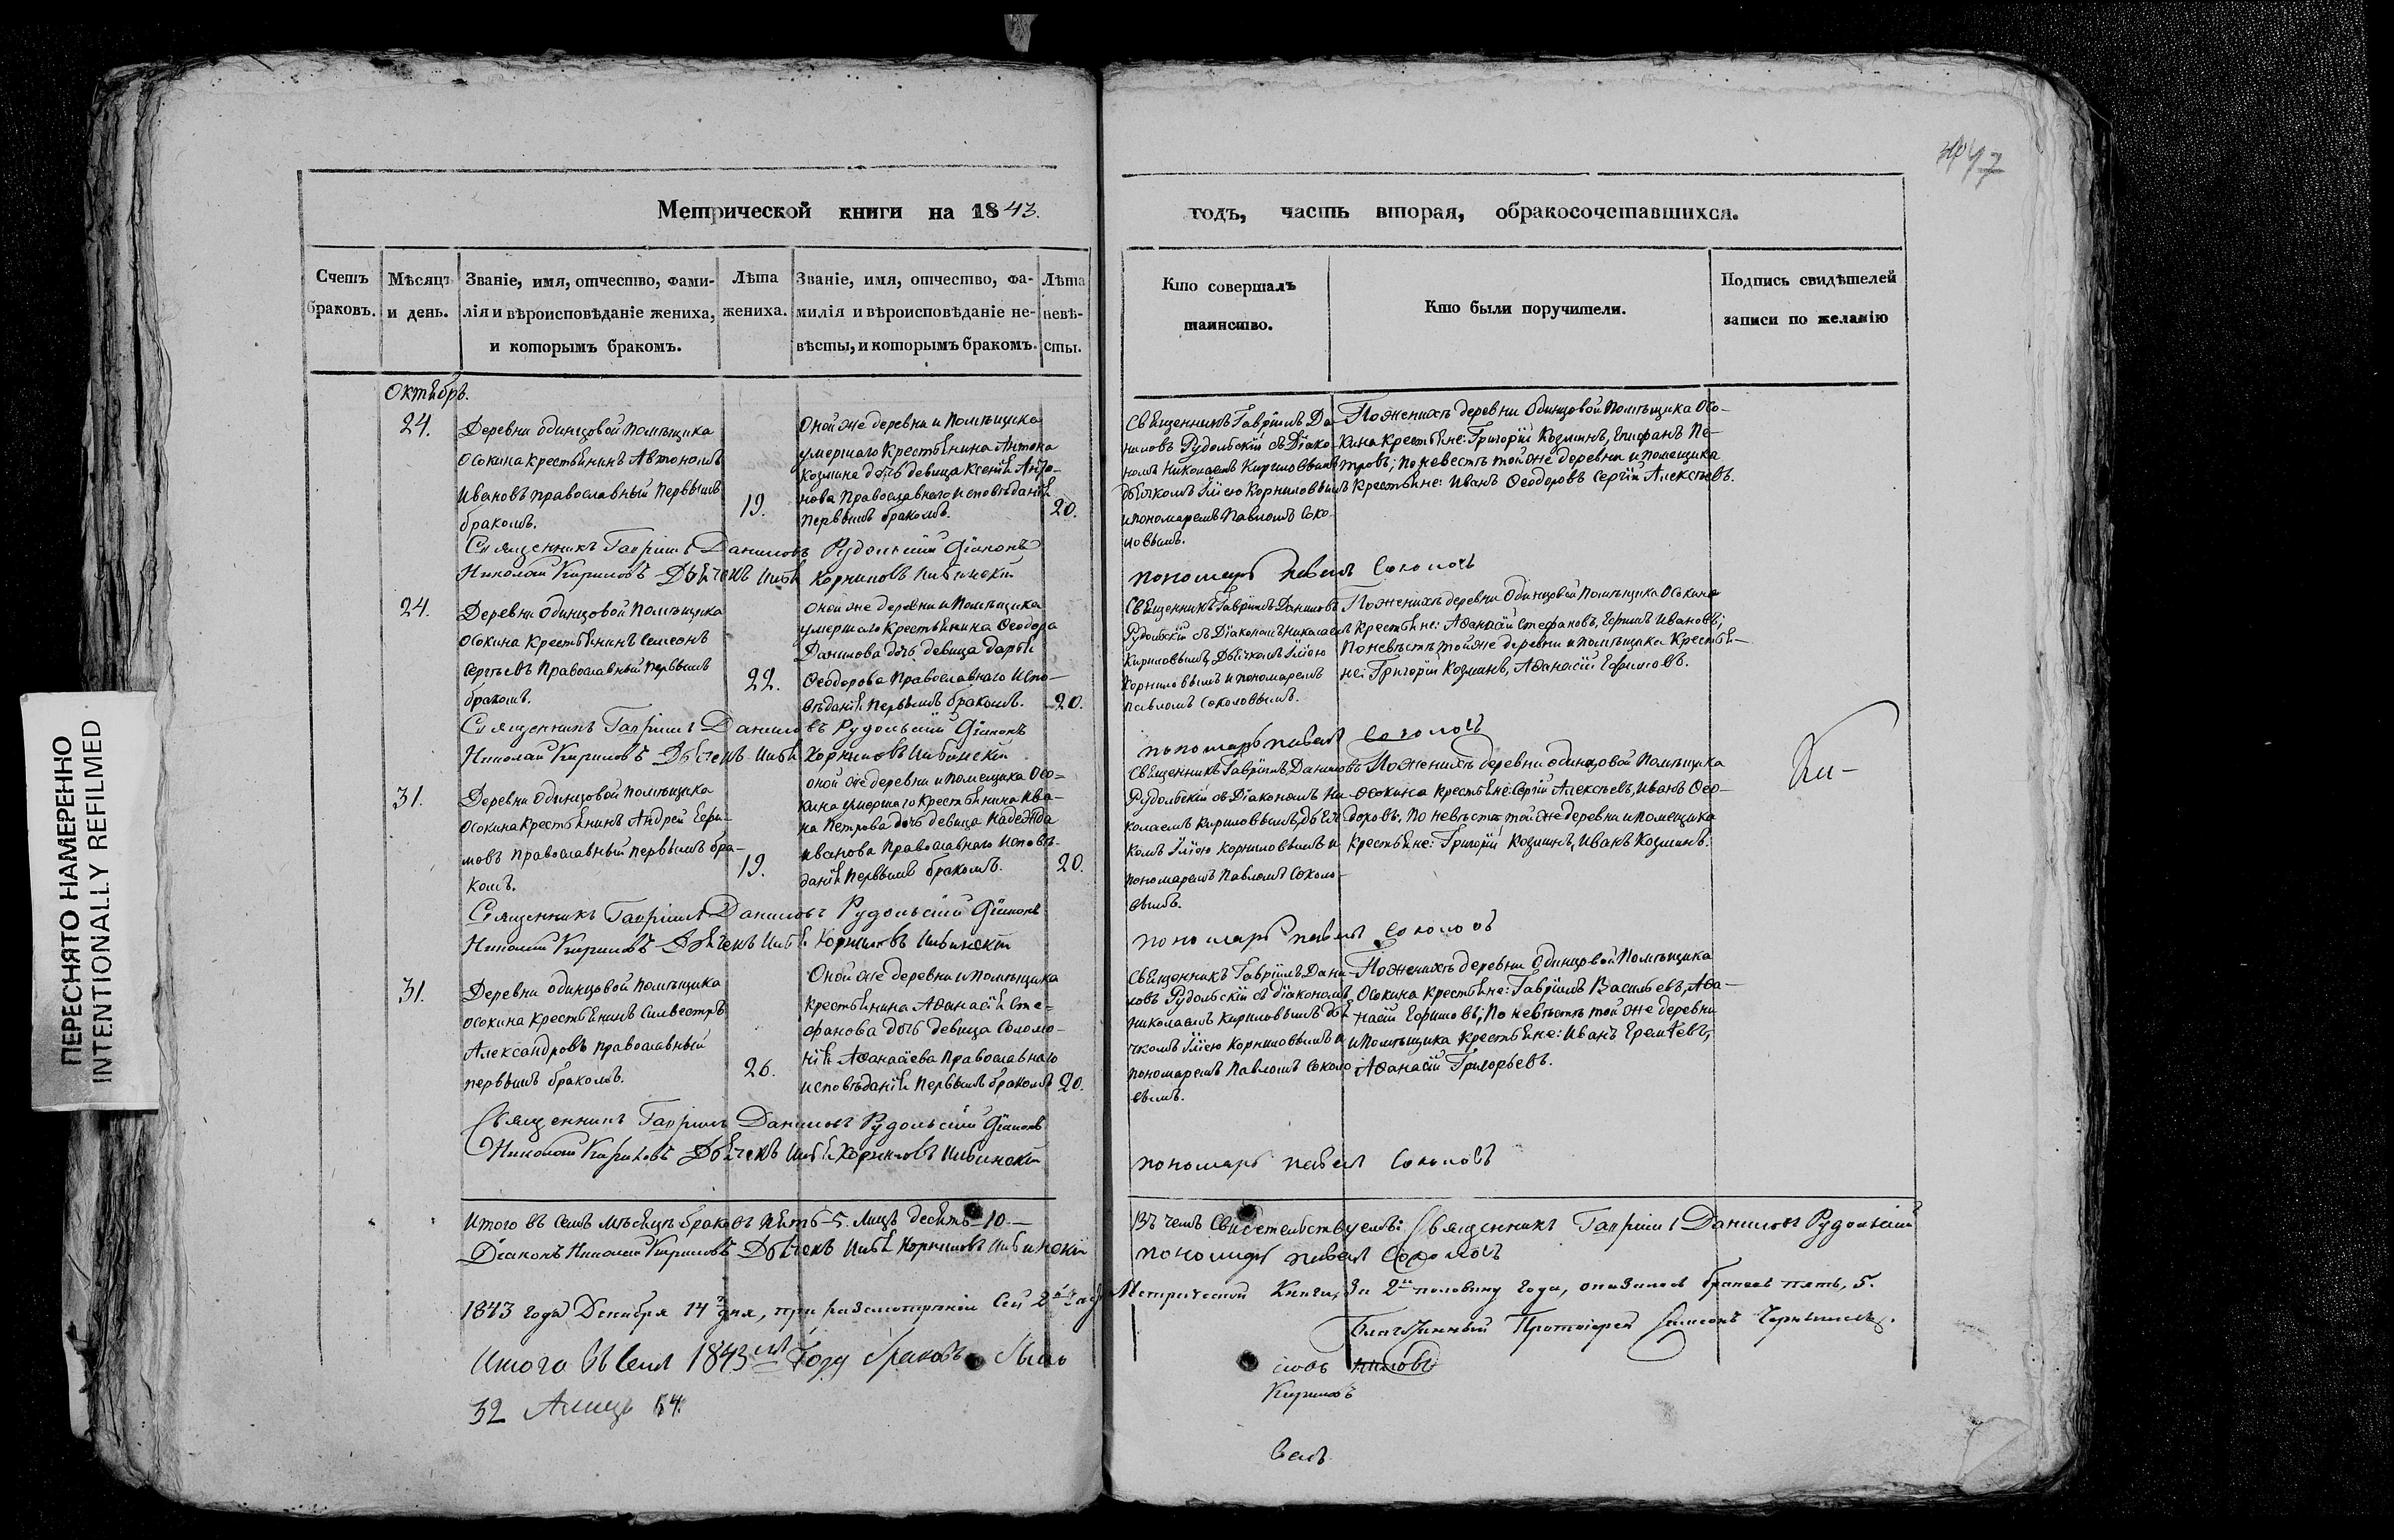 ПЕРЕСНЯТО НАМЕРЕННО
INTENTIONALLY REFILMED
Метрической книги на 1843.
Счетъ браковъ.
Мѣсяцъ и день.
Званіе, имя, отчество, фами-
лія и вѣроисповѣданіе жениха,
и которымъ бракомъ.
Лѣта
жениха.
Званіе, имя, отчество, фа-
милія и вѣроисповѣданіе не-
вѣсты, и которымъ бракомъ.
Лѣта
невѣ-
сты.
Октябрь.
24.
Деревни Одинцовой Помѣщика
Осокина крестьянинъ Автономъ
Ивановъ православный первымъ
бракомъ.
19.
Оной же деревни и Помѣщика
умершаго Крестьянина Антона
Козмина дочь девица Ксенія Анто-
нова Православнаго исповѣданія
первымъ бракомъ.
20.
Священникъ Гавріилъ Даниловъ Рудольскій Діаконъ
Николай Кириловъ Дьячекъ Илья Корниловъ
24.
Деревни Одинцовой Помѣщика
Осокина Крестьянинъ Симеонъ
Сергѣевъ Православный первымъ
бракомъ.
22.
Оной же деревни и Помѣщика
умершаго Крестьянина Ѳеодора
Данилова дочь девица Дарья
Ѳеодорова Православнаго Испо-
вѣданія первымъ бракомъ.
20.
Священникъ Гавріилъ Даниловъ Рудольскій Діаконъ
Николай Кириловъ Дьячекъ Илья Корниловъ
31.
Деревни Одинцовой Помѣщика
Осокина Крестьянинъ Андрей Ефи-
мовъ Православный первымъ бра-
комъ.
19.
Оной же деревни и помещика Осо-
кина умершаго крестьянина Ива-
на Петрова дочь девица Надежда
Иванова Православнаго исповѣ-
данія первымъ бракомъ.
20.
Священникъ Гавріилъ Даниловъ Рудольскій Діаконъ
Николай Кириловъ Дьячекъ Илья Корниловъ
31.
Деревни Одинцовой Помѣщика
Осокина крестьянинъ Сильвестръ
Александровъ православный
первымъ бракомъ.
26.
Оной же деревни и помѣщика
крестьянина Аѳанасія Сте-
фанова дочь девица Соломо-
нія Аѳанасіева Православнаго
исповѣданія первымъ бракомъ
20.
Священникъ Гавріилъ Даниловъ Рудольскій Діаконъ
Николай Кириловъ Дьячекъ Илья Корниловъ
Итого въ семъ мѣсяцѣ браковъ пять-5. Лицъ десять-10-
Діаконъ Николай Кириловъ Дьячекъ Илья Корниловъ
годъ, часть вторая, о бракосочетавшихся.
Кто совершалъ
таинство.
Кто были поручители.
Подпись свидѣтелей
записи по желанію
Священникъ Гавріилъ Да-
ниловъ Рудольскій съ Діако-
номъ Николаемъ Кириловымъ
дьячкомъ Ильею Корниловымъ
и пономаремъ Павломъ Соко-
ловымъ.
По женихѣ деревни Одинцовой Помѣщика Осо-
кина крестьяне: Григорій Козминъ, Епифанъ Пе-
тровъ; по невестѣ той же деревни и помещика
Крестьяне: Иванъ Ѳеодоровъ Сергій Алексѣевъ.
пономарь Павелъ Соколовъ
Священникъ Гавріилъ Даниловъ
Рудольскій съ Діакономъ Николаемъ
Кириловымъ, Дьячкомъ Ильею
Корниловымъ и пономаремъ
Павломъ Соколовымъ.
По женихѣ деревни Одинцовой Помѣщика Осокина
крестьяне: Аѳанасій Стефановъ, Ефимъ Ивановъ;
По невѣстѣ той же деревни и помѣщика Крестья-
не: Григорій Козминъ, Аѳанасій Ефимовъ.
пономарь Павелъ Соколовъ
Священникъ Гавріилъ Даниловъ
Рудольскій съ Діакономъ Ни-
колаемъ Кириловымъ, дьяч-
комъ Ильею Корниловымъ и
пономаремъ Павломъ Соколо-
вымъ.
По женихѣ деревни Одинцовой Помѣщика
Осокина крестьяне: Сергій Алексѣевъ, Иванъ Ѳео-
доровъ, по невѣстѣ той же деревни и помещика
крестьяне: Григорій Козминъ, Иванъ Козминъ.
пономарь Павелъ Соколовъ
Священникъ Гавріилъ Дани-
ловъ Рудольскій съ діакономъ
Николаемъ Кириловымъ дья-
чкомъ Ильею Корниловымъ и
пономаремъ Павломъ Соколо-
вымъ.
По женихѣ деревни Одинцовой Помѣщика
Осокина крестьяне: Гавріилъ Васильевъ, Аѳа-
насій Ефимовъ; По невѣстѣ той же деревни
и Помѣщика крестьяне: Иванъ Еремѣевъ,
Аѳанасій Григорьевъ.
пономарь Павелъ Соколовъ
Въ чемъ свидетельствуемъ: Священникъ Гавріилъ Даниловъ Рудольскій
пономарь Павелъ Соколовъ
1843 года Декабря 14 дня, при разсмотрѣніи сей 2й части Метрической Книги, за 2ю половину года, оказалось браковъ пять, 5.
Благочинный Протоіерей Симеонъ
Итого въ семъ 1843мъ году браковъ было
32 А лицъ 64.
Кириловъ